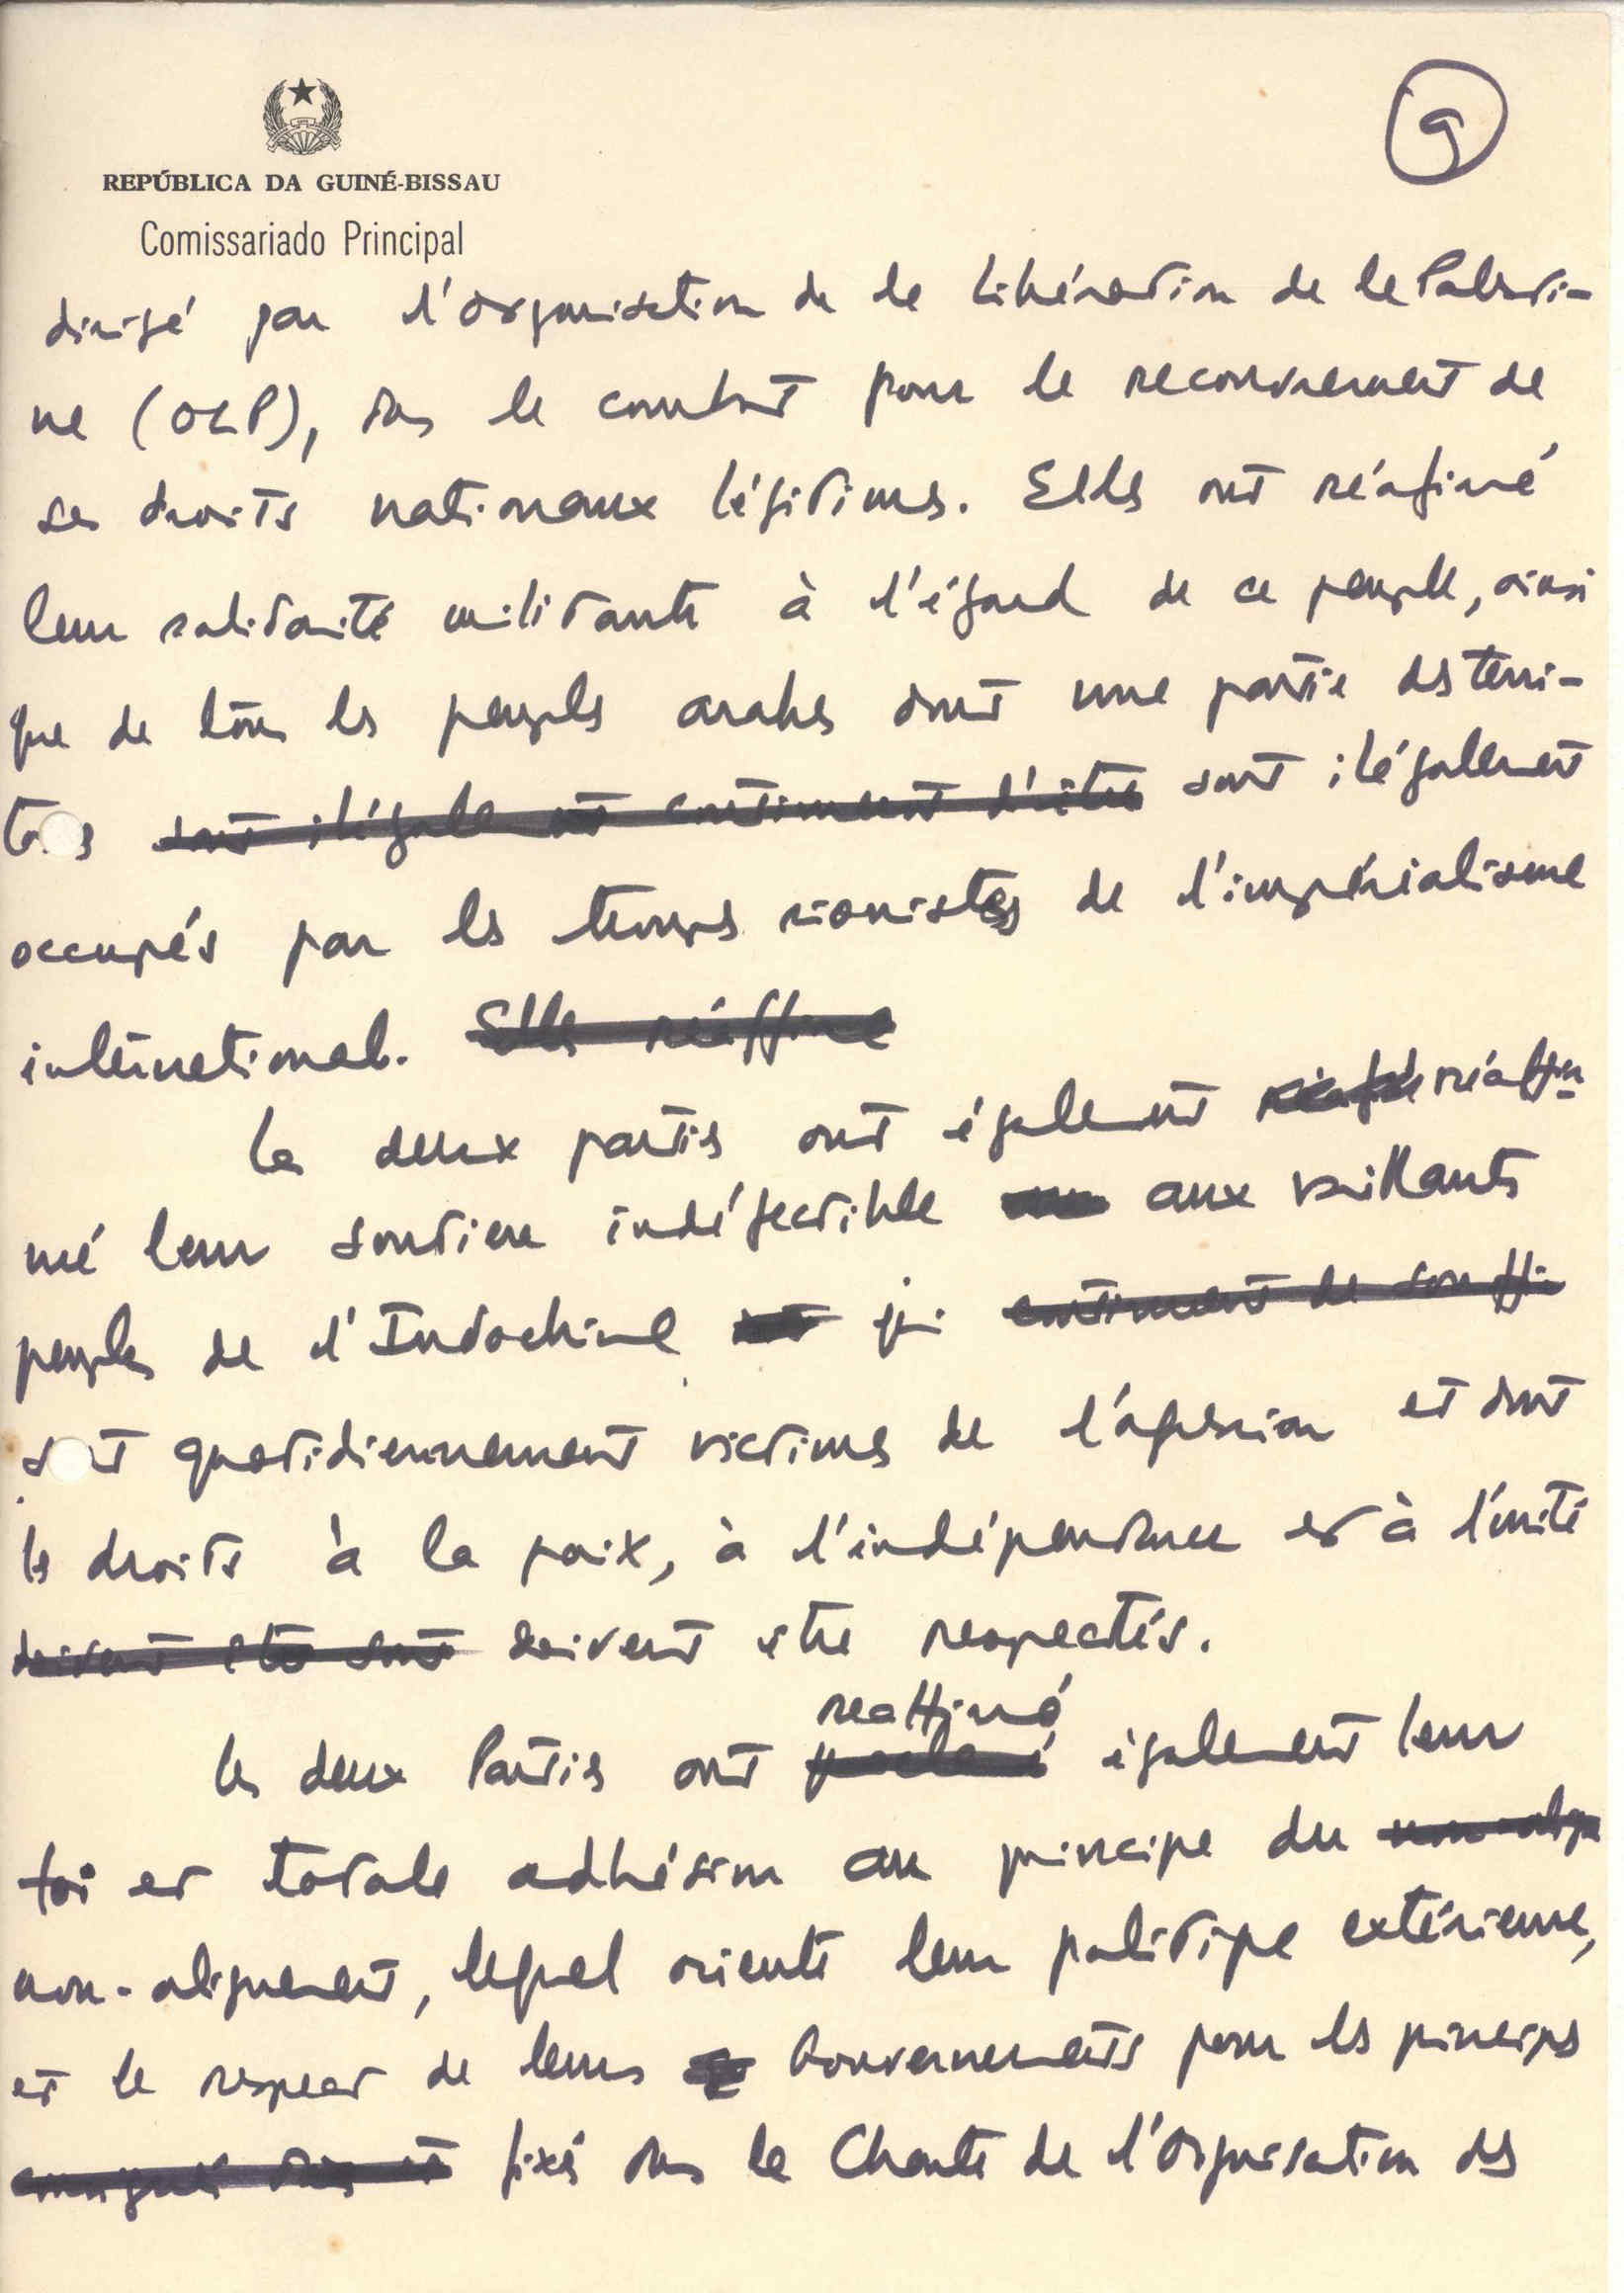 9
REPÚBLICA DA GUINÉ-BISSAU
Comissariado Principal
dirigé par l'Organisation de la Libération de la Palesti-
ne (OLP), dans le combat pour le recouvrement de
ses droits nationaux légitimes. Elles ont réafirmé
leur solidarité militante à l'égard de ce peuple, ainsi
que de tous les peuples arabes dont une partie des terri-
toires sont ilégale et continuent d'être sont ilégalement
occupés par les troupes sionistes de l'impérialisme
international. Elles réaffirme
Les deux parties ont également réaffir-
mé leur soutien indéfectible aux vaillants
peuples de l'Indochine qui continuent de souffri
sont quotidiennement victimes de l'agression et dont
les droits à la paix, à l'indépendance et à l'unité
doivent être sont doivent être respectés.
reaffirmé
Les deux Parties ont également leur
foi et totale adhésion au principe du non-alig
non-alignement, lequel oriente leur politique extérieure,
et le respect de leurs Gouvernements pour les principes
fixés dans la Charte de l'Organisation des